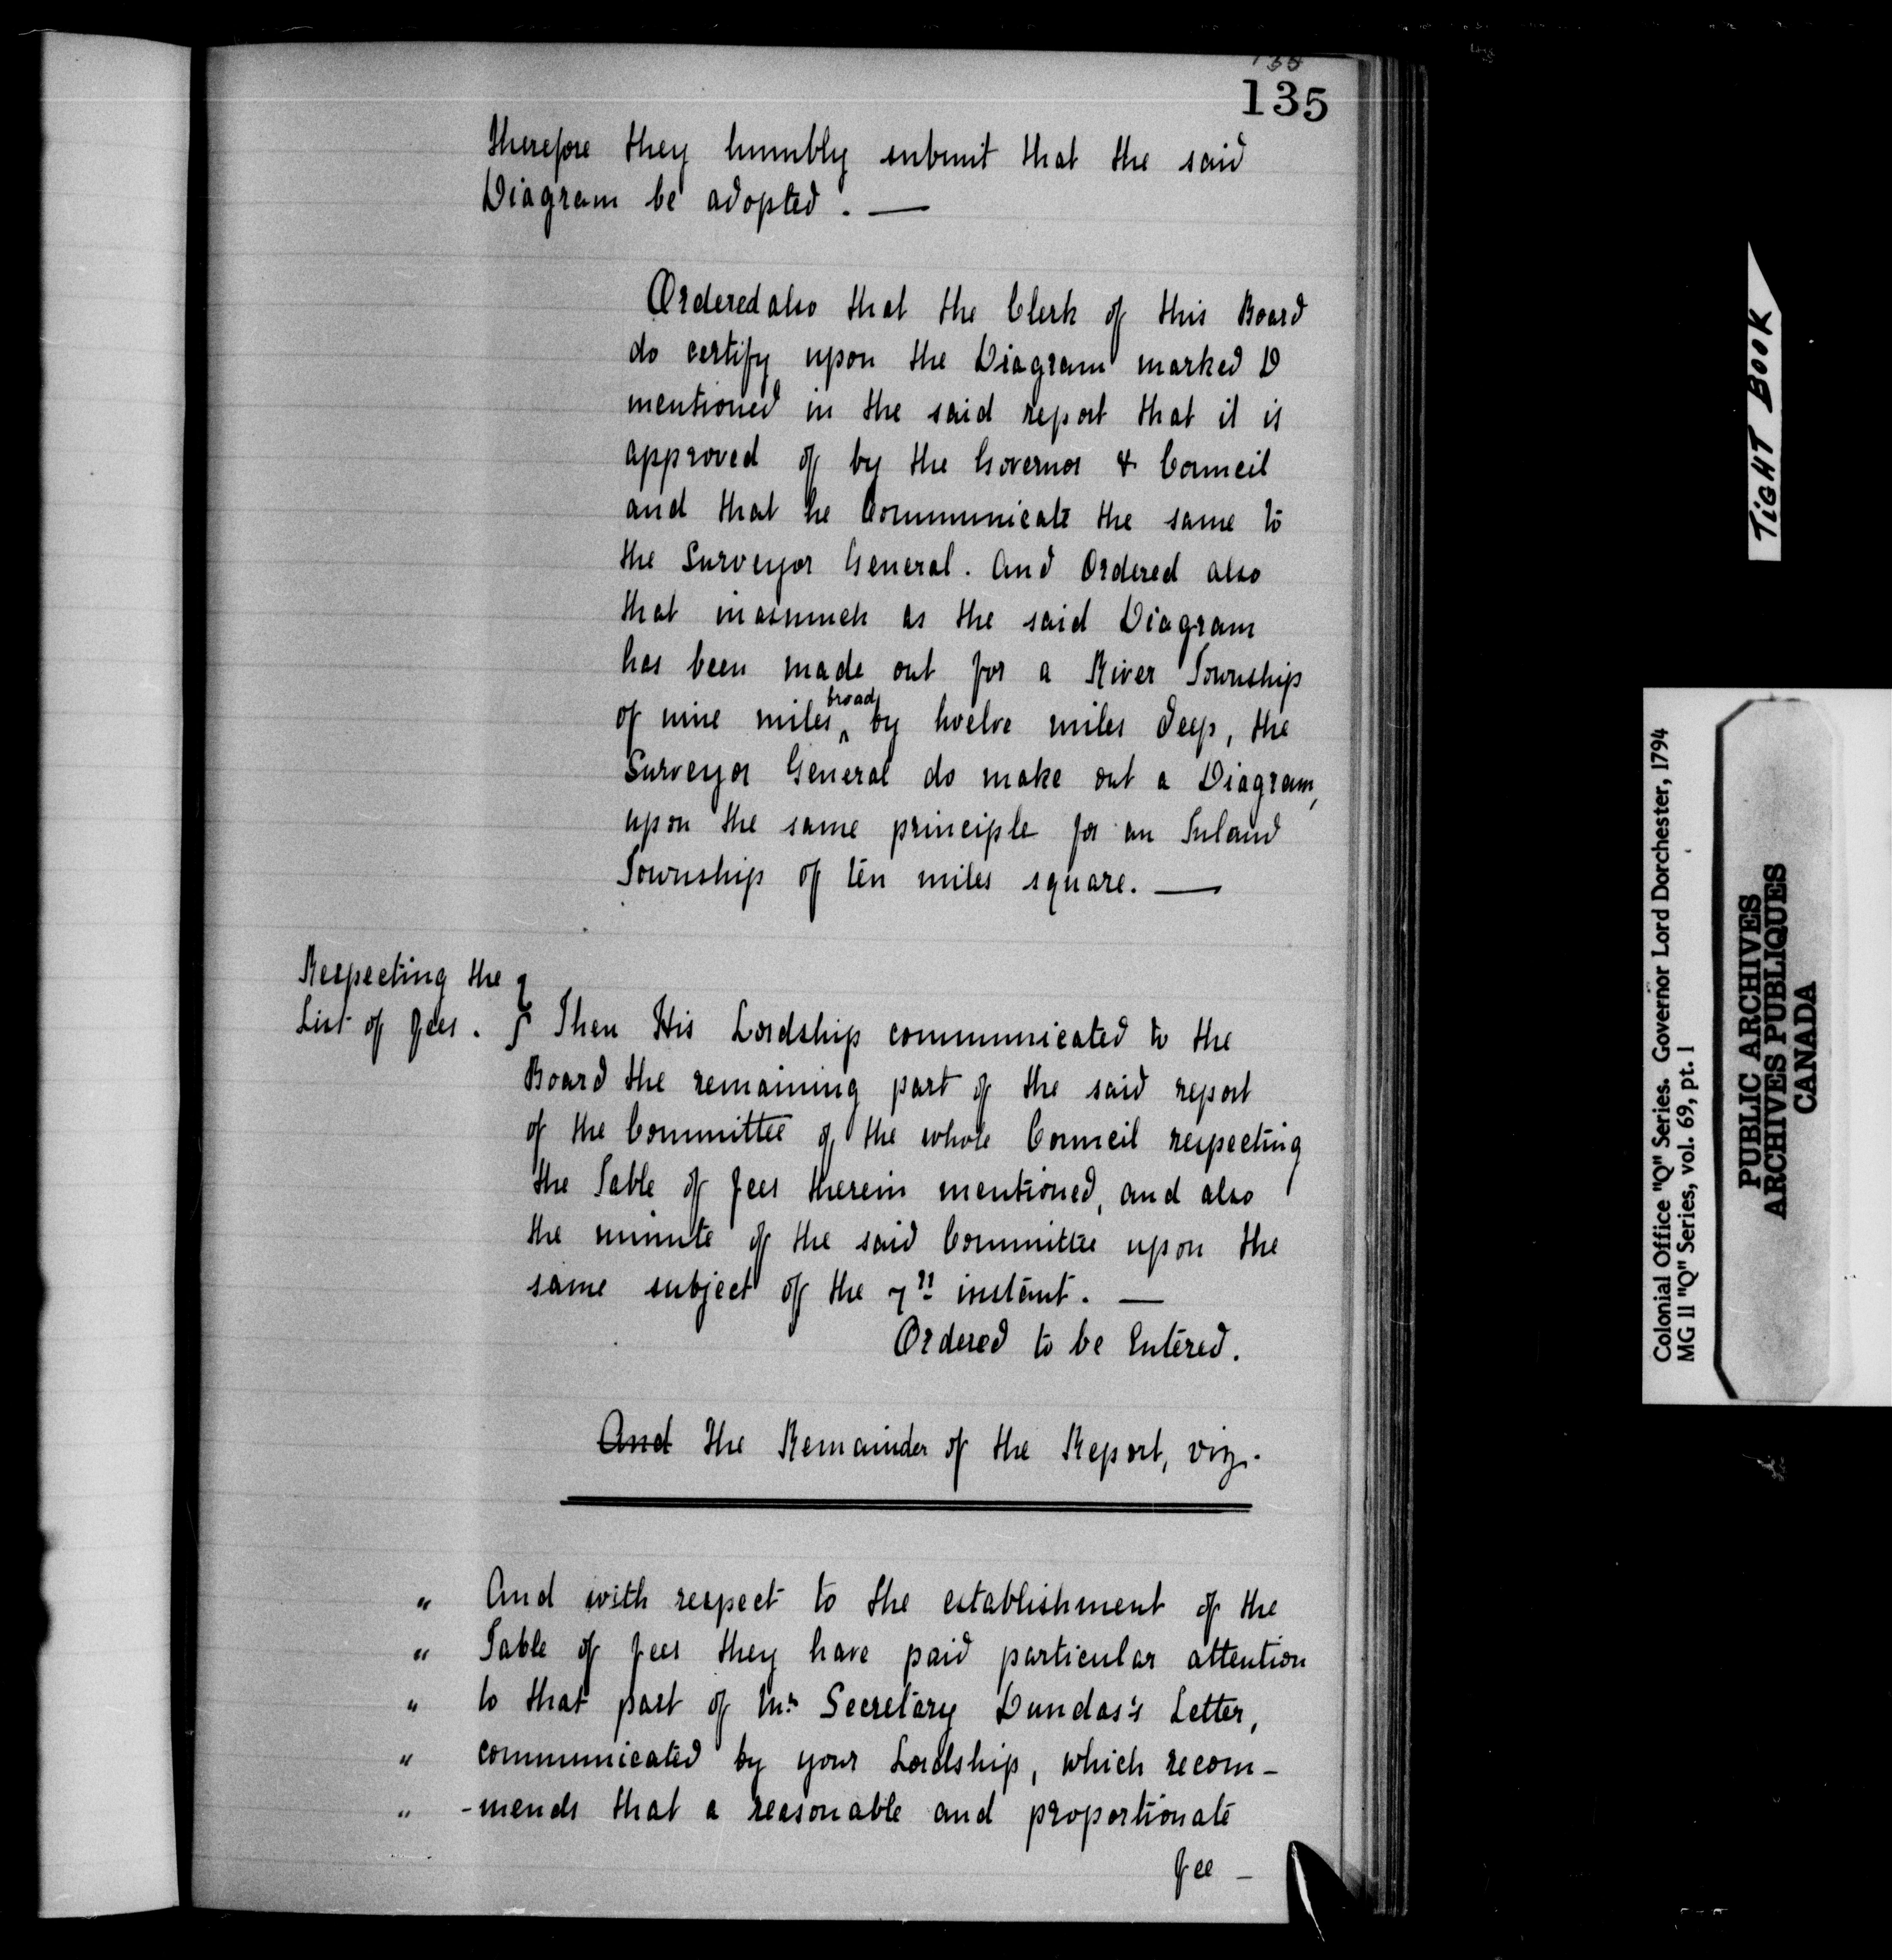 135
135
therefore they humbly submit that the said
Diagram be adopted. —
Ordered also that the Clerk of this Board
do certify upon the Diagram marked D
mentioned in the said report that it is
approved of by the Governor & Council
and that he Communicate the same to
the Surveyor General. And Ordered also
that inasmuch as the said Diagram
has been made out for a River Township
of nine miles broad by twelve miles deep, the
Surveyor General do make out a Diagram,
upon the same principle for an Inland
Township of ten miles square. —
Respecting the
List of fees.
Then His Lordship communicated to the
Board the remaining part of the said report
of the Committee of the whole Council respecting
the Table of fees therein mentioned, and also
the minute of the said Committee upon the
same subject of the 7th instant. —
Ordered to be Entered.
And the Remainder of the Report, viz.
" And with respect to the establishment of the
" Table of fees they have paid particular attention
" to that part of Mr Secretary Dundas's Letter,
" communicated by your Lordship, which recom-
" -mends that a reasonable and proportionate
fee -
TIGHT BOOK
Colonial Office "Q" Series. Governor Lord Dorchester, 1794
MG 11 "Q" Series, vol. 69, pt. 1
PUBLIC ARCHIVES
ARCHIVES PUBLIQUES
CANADA